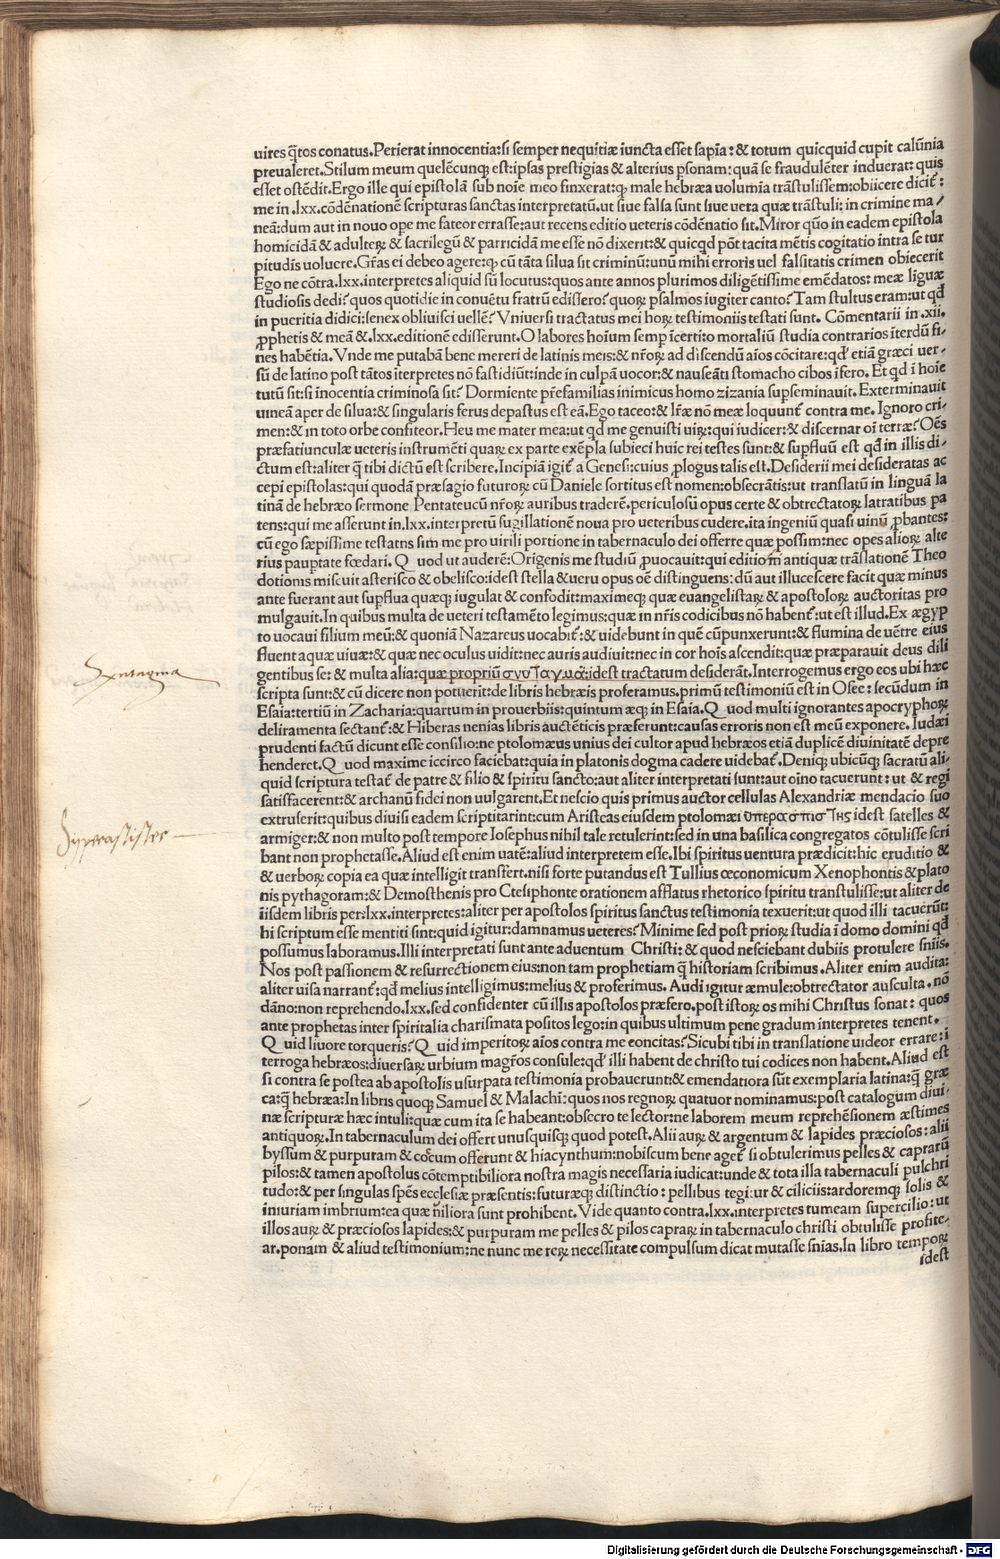 uires q̃tos conatus. Perierat innocentia: si semper nequitiæ iuncta esset sapĩa: & totum quicquid cupit calũnia
preualeret. Stilum meum quelẽcunq; est: ipsas prestigias & alterius psonam: quã se fraudulẽter induerat: quis
esset ostẽdit. Ergo ille qui epistolã sub noĩe meo finxerat: q; male hebræa uolumia trãstulissem: obiicere dicit̃:
me in .lxx. cõdẽnationẽ scripturas sanctas interpretatũ. ut siue falsa sunt siue uera quæ trãstuli: in crimine ma/
neã: dum aut in nouo ope me fateor errasse: aut recens editio ueteris cõdẽnatio sit. Miror quõ in eadem epistola
homicidã & adulteꝝ & sacrilegũ & parricidã me esse nõ dixerit: & quicqd põt tacita mẽtis cogitatio intra se tur
pitudis uoluere. Gr̃as ei debeo agere: q; cũ tãta silua sit criminũ: unũ mihi erroris uel falsitatis crimen obiecerit
Ego ne cõtra .lxx. interpretes aliquid sũ locutus: quos ante annos plurimos diligẽtissime emẽdatos: meæ liguæ
studiosis dedi? quos quotidie in conuẽtu fratrũ edissero? quoꝝ psalmos iugiter canto? Tam stultus eram: ut qd̃
in pueritia didici: senex obliuisci uellẽ? Vniuersi tractatus mei hoꝝ testimoniis testati sunt. Cõmentarii in .xii.
ꝓphetis & meã & .lxx. editionẽ edisserunt. O labores hoĩum semp ĩcerti: o mortaliũ studia contrarios ĩterdũ fi/
nes habẽtia. Vnde me putabã bene mereri de latinis meis: & nr̃oꝝ ad discendũ aĩos cõcitare: qd̃ etiã græci uer/
sũ de latino post tãtos ĩterpretes nõ fastidiũt: inde in culpã uocor: & nauseãti stomacho cibos ĩfero. Et qd ĩ hoĩe
tutũ sit: si ĩnocentia criminosa sit? Dormiente pr̃efamilias inimicus homo zizania supseminauit. Exterminauit
uineã aper de silua: & singularis ferus depastus est eã. Ego taceo: & lr̃æ nõ meæ loquunt̃ contra me. Ignoro cri/
men: & in toto orbe confiteor. Heu me mater mea: ut qd me genuisti uiꝝ: qui iudicer: & discernar oĩ terræ? Oẽs
præfatiunculæ ueteris instrumẽti quaꝝ ex parte exẽpla subieci huic rei testes sunt: & supfluũ est qd̃ in illis di/
ctum est: aliter q̃ tibi dictũ est scribere. Incipiã igit̃ a Genesi: cuius ꝓlogus talis est. Desiderii mei desideratas ac
cepi epistolas: qui quodã præsagio futuroꝝ cũ Daniele sortitus est nomen: obsecrãtis: ut translatũ in linguã la
tinã de hebræo sermone Pentateucũ nr̃oꝝ auribus traderẽ. periculosũ opus certe & obtrectatoꝝ latratibus pa
tens: qui me asserunt in .lxx. interpretũ sugillationẽ noua pro ueteribus cudere. ita ingeniũ quasi uinũ ꝓbantes:
cũ ego sæpissime testatus sim me pro uirili portione in tabernaculo dei offerre quæ possim: nec opes alioꝝ alte
rius pauptate fœdari. Q uod ut auderẽ: Origenis me studiũ ꝓuocauit: qui editiom̃ antiquæ trãslationẽ Theo
dotionis miscuit asterisco & obelisco: idest stella & ueru opus oẽ distinguens: dũ aut illucescere facit quæ minus
ante fuerant aut supflua quæq; iugulat & confodit: maximeq; quæ euangelistaꝝ & apostoloꝝ auctoritas pro
mulgauit. In quibus multa de ueteri testamẽto legimus: quæ in nr̃is codicibus nõ habent̃: ut est illud. Ex ægyp
to uocaui filium meũ: & quoniã Nazareus uocabit̃: & uidebunt in quẽ cũpunxerunt: & flumina de uẽtre eius
fluent aquæ uiuæ: & quæ nec oculus uidit: nec auris audiuit: nec in cor hoĩs ascendit: quæ præparauit deus dili
gentibus se: & multa alia: quæ propriũ σύνταγμα: idest tractatum desiderãt. Interrogemus ergo eos ubi hæc
scripta sunt: & cũ dicere non potuerit: de libris hebræis proferamus. primũ testimoniũ est in Osee: secũdum in
Esaia: tertiũ in Zacharia: quartum in prouerbiis: quintum æq; in Esaia. Q uod multi ignorantes apocryphoꝝ
deliramenta sectant̃: & Hiberas nenias libris auctẽticis præferunt: causas erroris non est meũ exponere. Iudæi
prudenti factũ dicunt esse consilio: ne ptolomæus unius dei cultor apud hebræos etiã duplicẽ diuinitatẽ depre
henderet. Q uod maxime iccirco faciebat: quia in platonis dogma cadere uidebat̃. Deniq; ubicũq; sacratũ ali/
quid scriptura testat̃ de patre & filio & spiritu sancto: aut aliter interpretati sunt: aut oĩno tacuerunt: ut & regi
satisfacerent: & archanũ fidei non uulgarent. Et nescio quis primus auctor cellulas Alexandriæ mendacio suo
extruserit: quibus diuisi eadem scriptitarint: cum Aristeas eiusdem ptolomæi ὑπερασπιστὴς idest satelles &
armiger: & non multo post tempore Iosephus nihil tale retulerint: sed in una basilica congregatos cõtulisse scri
bant non prophetasse. Aliud est enim uatẽ: aliud interpretem esse. Ibi spiritus uentura prædicit: hic eruditio &
& uerboꝝ copia ea quæ intelligit transfert. nisi forte putandus est Tullius œconomicum Xenophontis & plato
nis pythagoram: & Demosthenis pro Ctesiphonte orationem afflatus rhetorico spiritu transtulisse: ut aliter de
iisdem libris per .lxx. interpretes: aliter per apostolos spiritus sanctus testimonia texuerit: ut quod illi tacuerũt:
hi scriptum esse mentiti sint: quid igitur: damnamus ueteres? Minime sed post prioꝝ studia ĩ domo domini qd̃
possumus laboramus. Illi interpretati sunt ante aduentum Christi: & quod nesciebant dubiis protulere sñiis.
Nos post passionem & resurrectionem eius: non tam prophetiam q̃ historiam scribimus. Aliter enim audita:
aliter uisa narrant̃: qd̃ melius intelligimus: melius & proferimus. Audi igitur æmule: obtrectator ausculta. nõ
dãno: non reprehendo .lxx. sed confidenter cũ illis apostolos præfero. post istoꝝ os mihi Christus sonat: quos
ante prophetas inter spiritalia charismata positos lego: in quibus ultimum pene gradum interpretes tenent.
Q uid liuore torqueris? Q uid imperitoꝝ aĩos contra me concitas? Sicubi tibi in translatione uideor errare: i
terroga hebræos: diuersaꝝ urbium magr̃os consule: qd̃ illi habent de christo tui codices non habent. Aliud est
si contra se postea ab apostolis usurpata testimonia probauerunt: & emendatiora sũt exemplaria latina: q̃ græ
ca: q̃ hebræa: In libris quoq; Samuel & Malachi: quos nos regnoꝝ quatuor nominamus: post catalogum diui/
næ scripturæ hæc intuli: quæ cum ita se habeant: obsecro te lector: ne laborem meum reprehẽsionem æstimes
antiquoꝝ. In tabernaculum dei offert unusquisq; quod potest. Alii auꝝ & argentum & lapides præciosos: alii
byssum & purpuram & cocum offerunt & hiacynthum: nobiscum bene aget̃ si obtulerimus pelles & caprarũ
pilos: & tamen apostolus cõtemptibiliora nostra magis necessaria iudicat: unde & tota illa tabernaculi pulchri
tudo: & per singulas spẽs ecclesiæ præsentis: futuræq; distinctio: pellibus tegitur & ciliciis: ardoremq; solis &
iniuriam imbrium: ea quæ uiliora sunt prohibent. Vide quanto contra .lxx. interpretes tumeam supercilio: ut
illos auꝝ & præciosos lapides: & purpuram me pelles & pilos capraꝝ in tabernaculo christi obtulisse profite/
ar. ponam & aliud testimonium: ne nunc me reꝝ necessitate compulsum dicat mutasse sñias. In libro tempoꝝ
idest
Syntagma
Hyperaspistes
Digitalisierung gefördert durch die Deutsche Forschungsgemeinschaft - DFG